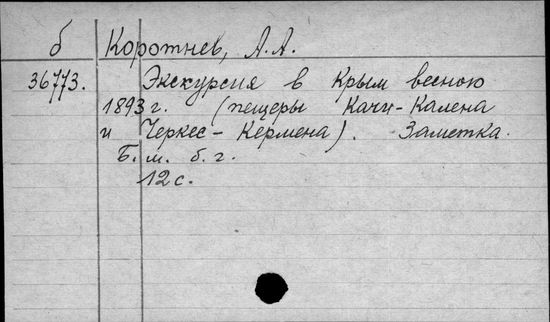 б Коротнев, А.А.
36773. Экскурсия в Крым весною
1893 г. (пещеры Качи-Калена
и Черкес-Кермена). Заметка.
Б.м. б.г.
12 с.